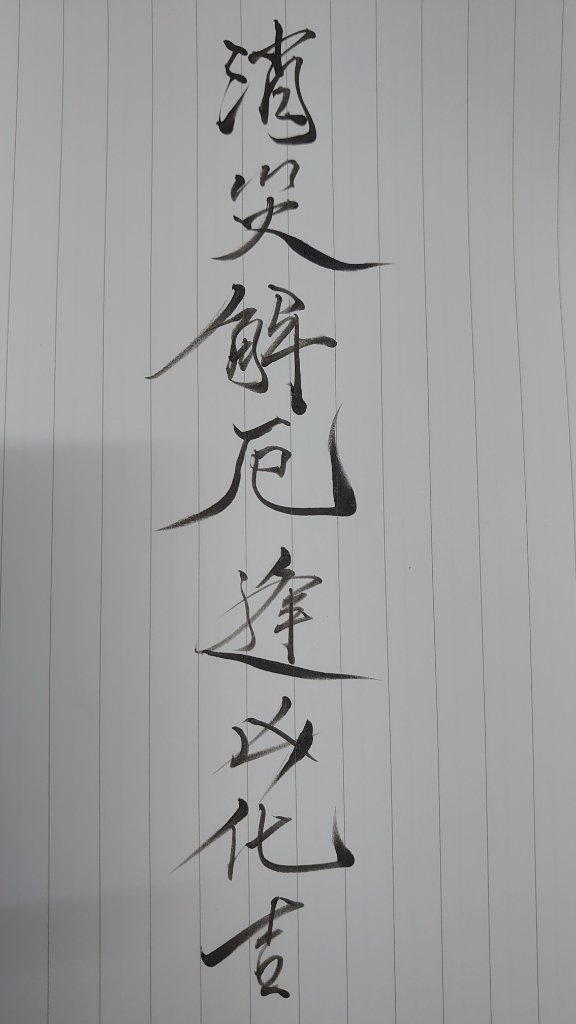 消災解厄逢凶化吉